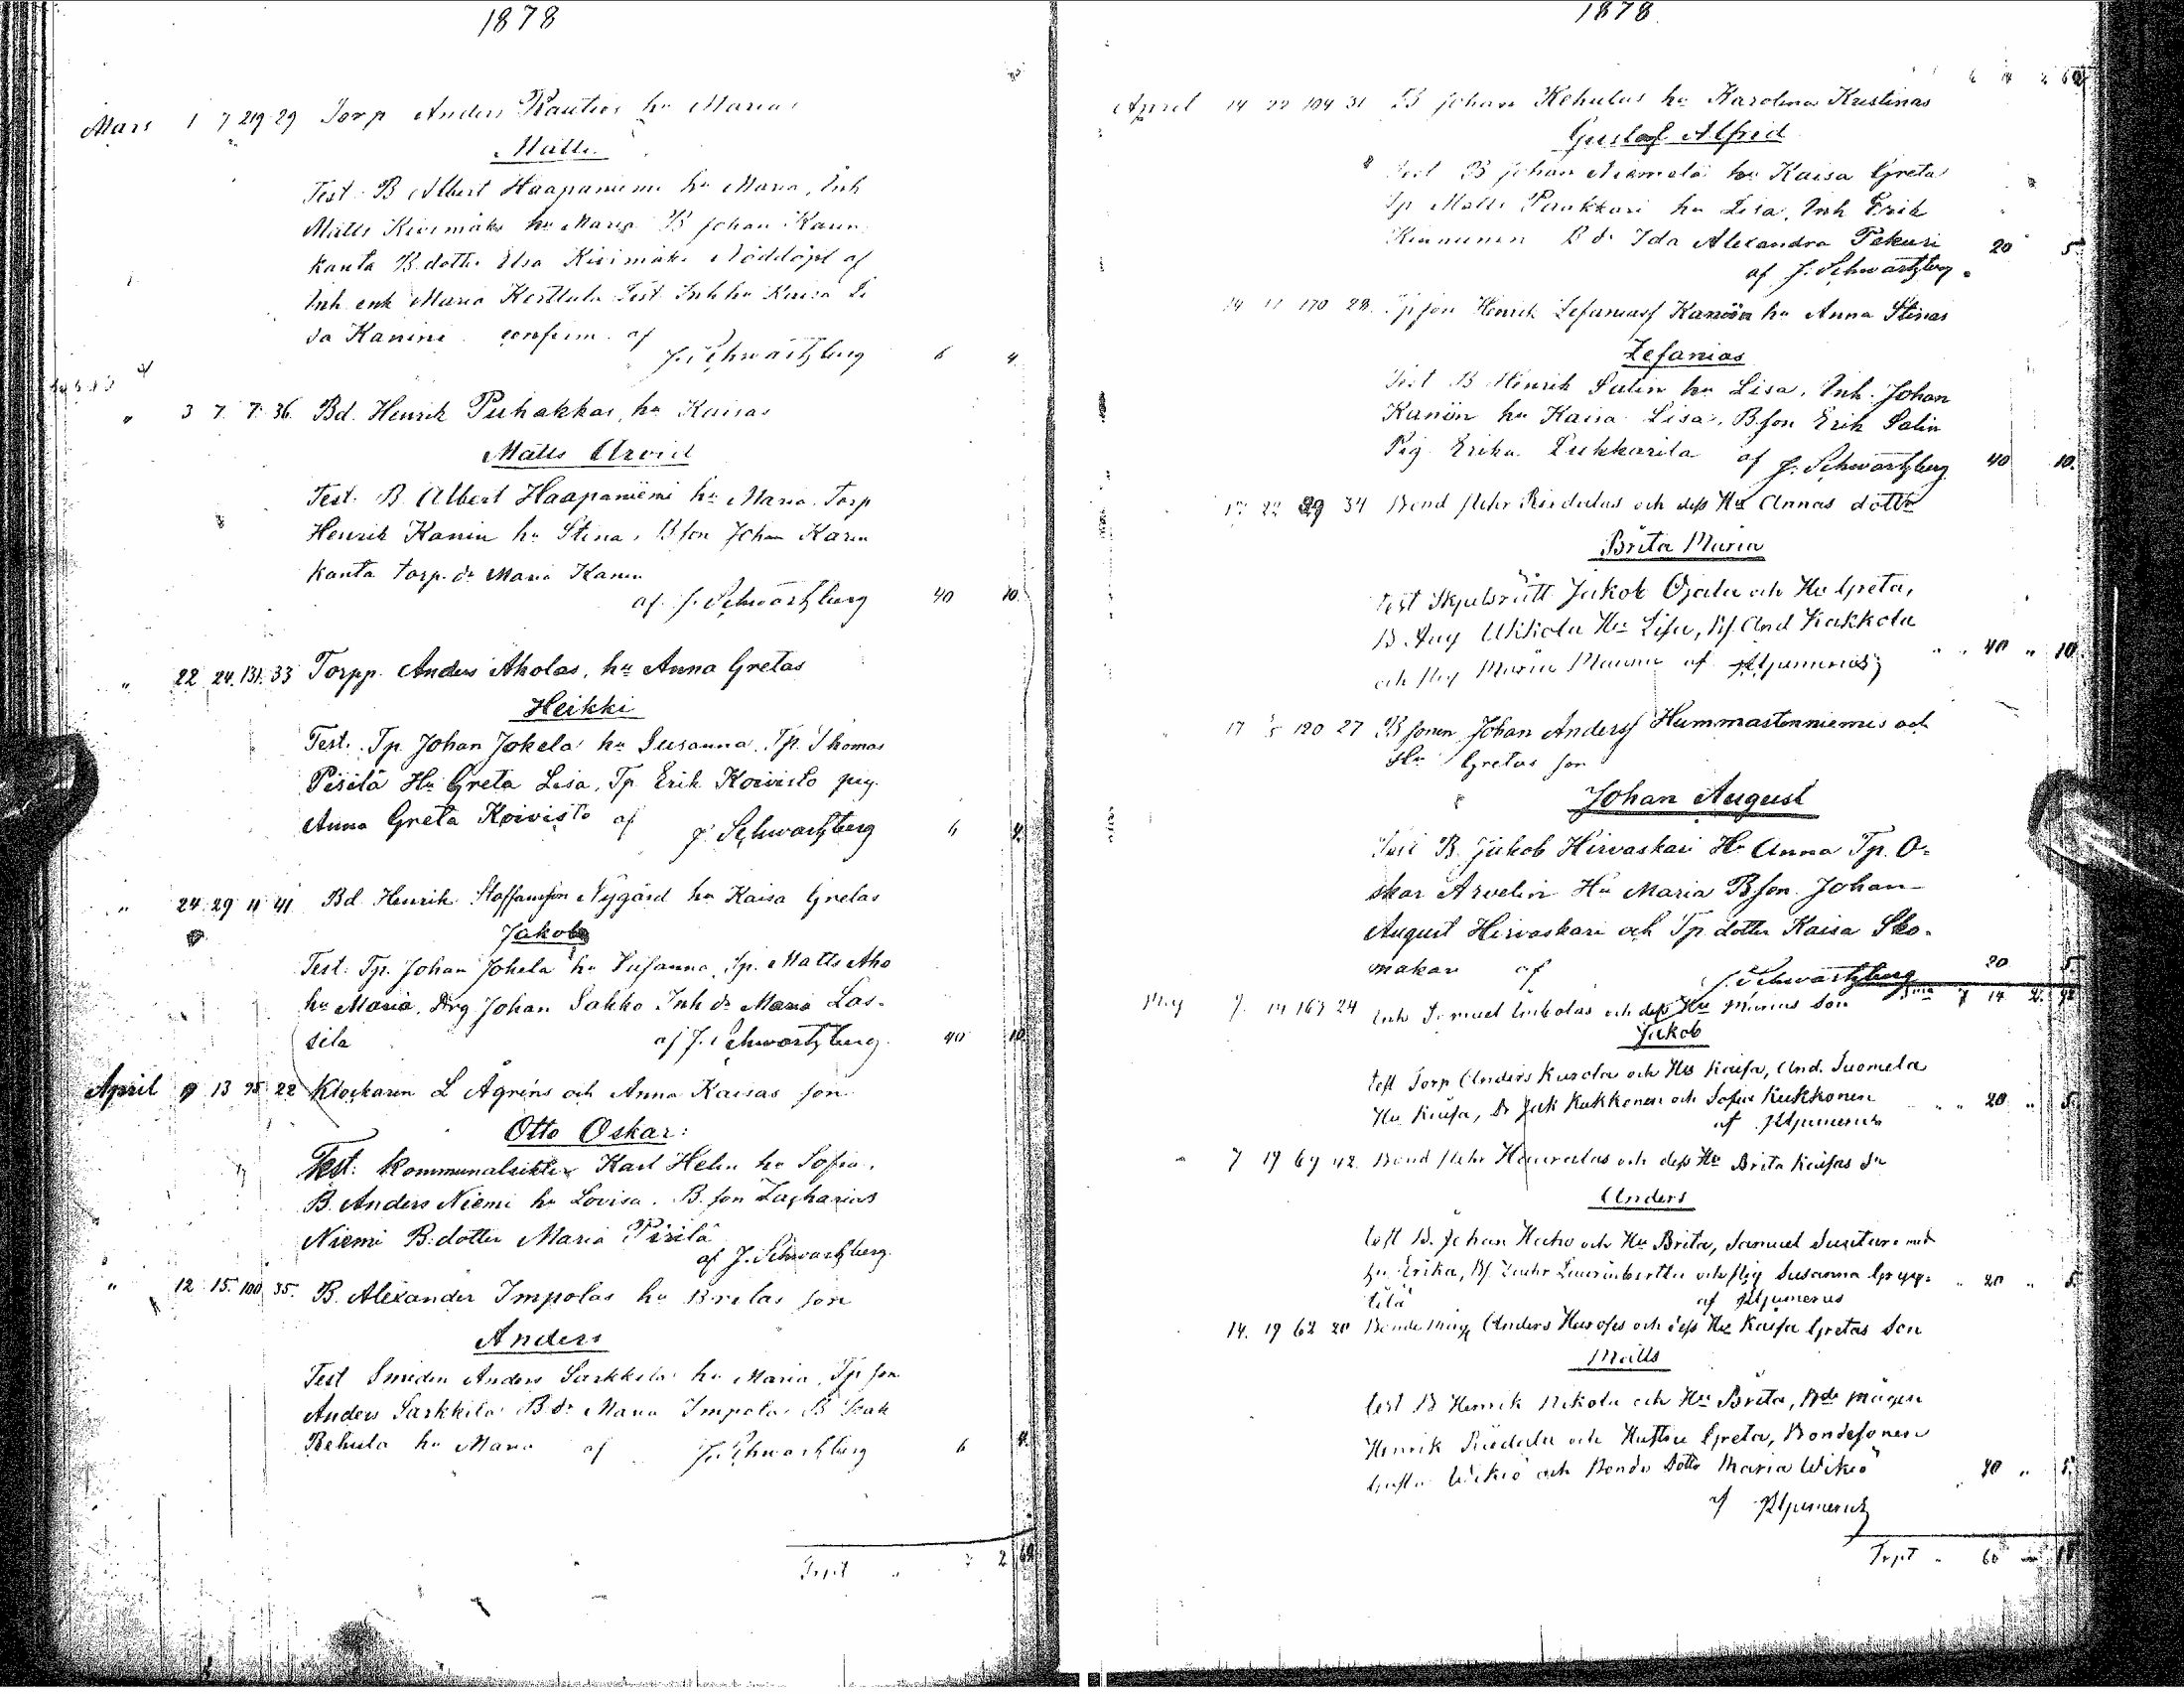 1878
Mars 1 7 219 29 Torp Anders Rautios hu Marias
Matts
Test. B Albert Haapaniemi hu Maria, Inh
Matts Kivimäki hu Maria B Johan Karin
kanta B.dottr Elsa Kivimäki Nöddöpt af
Inh enk Maria Kerttula Test Inh hu Kaisa Li
sa Kanini confirm. af
J. Schwartzberg 6 4
" 3 7. 7. 36. Bd. Henrik Puhakkas, hu Kaisas
Matts Arvid
Test. B. Albert Haapaniemi hu Maria. Torp
Henrik Kanin hu Stina, B son Johan Karin
kanta torp. dr Maria Kanin
af J. Schwartzberg 40 10.
" 22 24. 131. 33 Torpp. Anders Aholas, hu Anna Gretas
Heikki
Test. Tp. Johan Jokela hu Susanna. Tp. Thomas
Pirilä Hu Greta Lisa, Tp. Erik Koivisto pig.
Anna Greta Koivisto af
J. Schwartzberg 6 4.
" 24 29 11 41 Bd. Henrik Staffansson Nygård hu Kaisa Gretas
Jakob
Test: Tp. Johan Jokela hu Susanna, Tp. Matts Aho
hu Maria. Drg Johan Sakko Inh dr Maria Las-
sila af J. Schwartzberg. 40 10.
April 9 13 95 22 Klockaren L Ågréns och Anna Kaisas son
Otto Oskar:
Test: Kommunal Karl Helin hu Sofia,
B. Anders Niemi hu Lovisa. B. son Zacharias
Niemi B. dotter Maria Pirilä
af J. Schwartzberg.
" 12 15. 100 35. B. Alexander Impolas hu Britas son
Anders
Test Smeden Anders Sarkkila hu Maria, Tp son
Anders Sarkkila B dr Maria Impola B Isak
Rehula hu Maria af J. Schwartzberg 6 4.
Trpt 2 64
1878.
April 14 22 104 31 B Johan Rehulas hu Karolina Kristinas
Gustaf Alfred
Test B Johan Niemelä hu Kaisa Greta
Tp Matts Pankkari hu Lisa, Inh Erik
Kinnunen B dr Ida Alexandra Pekuri 20 5
af J. Schwartzberg.
14 17 170 28. Tp son Henrik Zefaniass Kanöin hu Anna Stinas
Zefanias
Test B Henrik Salin hu Lisa, Inh. Johan
Kanön hu Kaisa Lisa. B son Erik Salin
Pig Erika Lukkarila af J. Schwartzberg 40 10.
17 22 29 34 Bond Riedulas och dess Hu Annas dotter
Brita Maria
Test Skjutsrätt Jakob Ojala och Hu Greta,
B. Aug Hu Lisa, And Kakkola
och Pig Maria af 40 " 10.
17 120 27 B sonen Johan Anderss Hummastenniemis och
Hu Gretas son
Johan August
Test B. Jakob Hirvaskari Hu Anna Tp. O-
skar Arvelin Hu Maria B son Johan
August Hirvaskari och Tp dotter Kaisa Sko-
makar af J. Schwartzberg 20 5.
May 7 14 163 24 Inh Samuel och dess Hu Marias son
Jakob
test Torp Anders Kurola och Hu Kaisa, And. Suomela
Hu Kaisa, Dr Jak Kukkonen och Sofia Kukkonen 20 " 5.
af
7 19 69 42. Bond och dess Hu Brita Kaisas Sn
Anders
test B. Johan Hecho och Hu Brita, Samuel med
hu Erika, och pig Susanna 20 " 5.
tilä af
14. 19 62 20 Bonde måg Anders och dess Hu Kaisa Gretas son
Matts
test B Henrik och Hu Brita, Bde mågen
Henrik Riedula och Hustru Greta, Bondesonen
Wikiö och Bonde dottr Maria Wikiö "
af
Trpt " 60